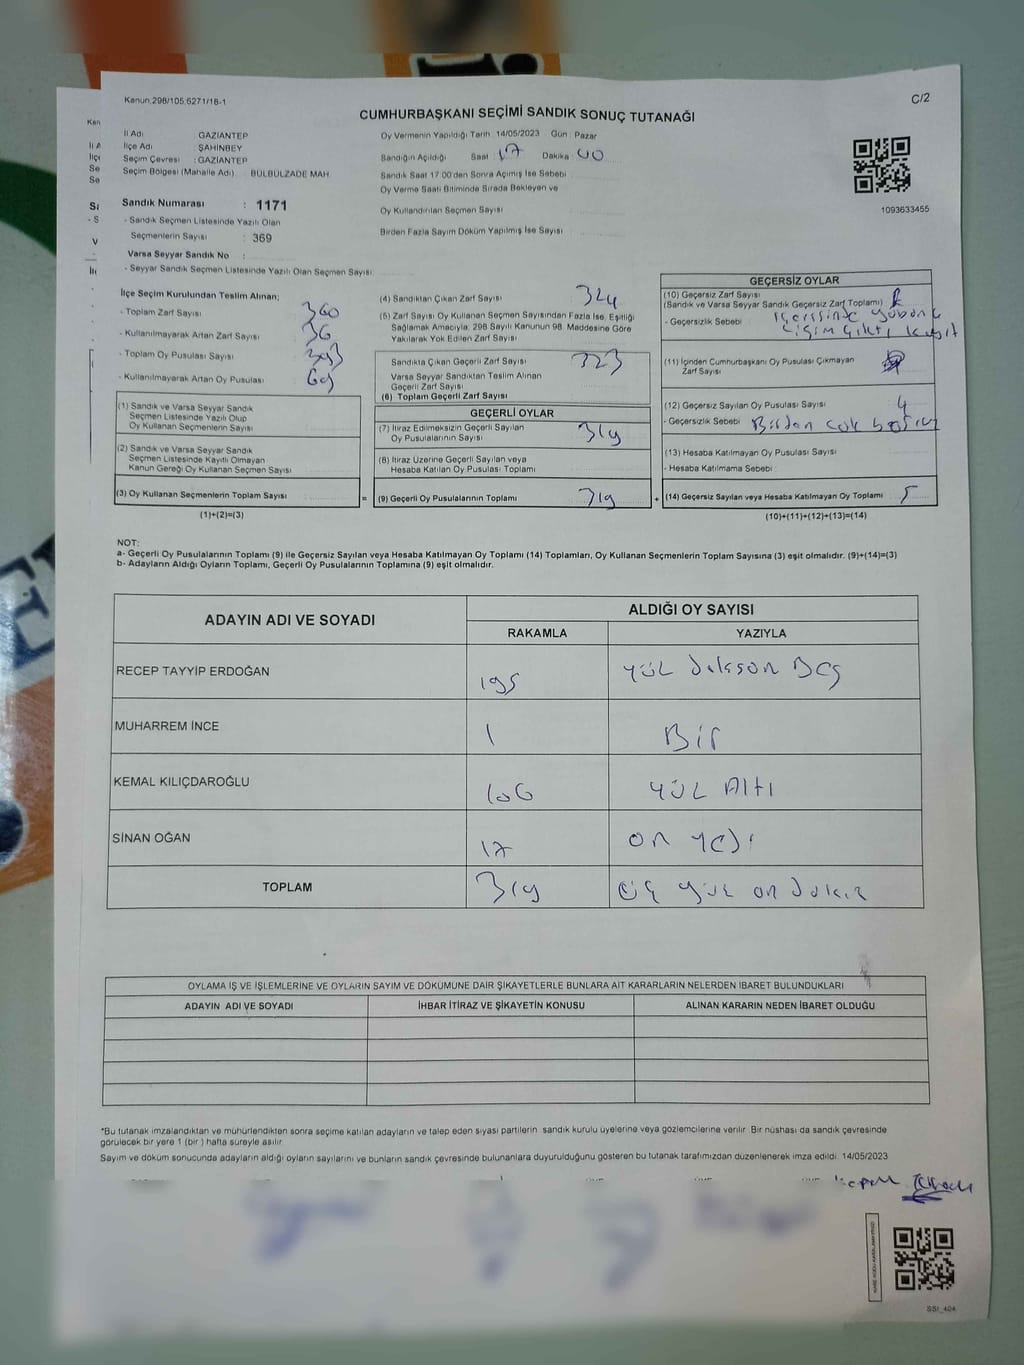 Kanun.298/105,6271/18-1
C/2
CUMHURBAŞKANI SEÇİMİ SANDIK SONUÇ TUTANAĞI
İl Adı GAZIANTEP
İlçe Adı ŞAHİNBEY
Seçim Çevresi : GAZİANTEP
Seçim Bölgesi (Mahalle Adı) BÜLBÜLZADE MAH.
Sandık Numarası : 1171
- Sandık Seçmen Listesinde Yazılı Olan
Seçmenlerin Sayısı : 369
Varsa Seyyar Sandık No :
- Seyyar Sandık Seçmen Listesinde Yazılı Olan Seçmen Sayısı:
Oy Vermenin Yapıldığı Tarih 14/05/2023 Gün : Pazar
Sandığın Açıldığı Saat 17 Dakika 00
Sandık Saat 17.00'den Sonra Açımış İse Sebebi
Oy Verme Saati Bitiminde Sırada Bekleyen ve
Oy Kullandırılan Seçmen Sayısı
Birden Fazla Sayım Döküm Yapılmış İse Sayısı
1093633455
İlçe Seçim Kurulundan Teslim Alınan;
- Toplam Zarf Sayısı 360
- Kullanılmayarak Artan Zarf Sayısı 36
- Toplam Oy Pusulası Sayısı 393
- Kullanılmayarak Artan Oy Pusulası 69
(1) Sandık ve Varsa Seyyar Sandık
Seçmen Listesinde Yazılı Olup
Oy Kullanan Seçmenlerin Sayısı
(2) Sandık ve Varsa Seyyar Sandık
Seçmen Listesinde Kayıtlı Olmayan
Kanun Gereği Oy Kullanan Seçmen Sayısı
(3) Oy Kullanan Seçmenlerin Toplam Sayısı
(1)+(2)=(3)
(4) Sandıktan Çıkan Zarf Sayısı 324
(5) Zarf Sayısı Oy Kullanan Seçmen Sayısından Fazla İse, Eşitliği
Sağlamak Amacıyla, 298 Sayılı Kanunun 98. Maddesine Göre
Yakılarak Yok Edilen Zarf Sayısı
Sandıkta Çıkan Geçerli Zarf Sayısı 323
Varsa Seyyar Sandıktan Teslim Alınan
Geçerli Zarf Sayısı
(6) Toplam Geçerli Zarf Sayısı
GEÇERLİ OYLAR
(7) İtiraz Edilmeksizin Geçerli Sayılan
Oy Pusulalarının Sayısı 319
(8) İtiraz Üzerine Geçerli Sayılan veya
Hesaba Katılan Oy Pusulası Toplamı
= (9) Geçerli Oy Pusulalarının Toplamı 319
GEÇERSİZ OYLAR
(10) Geçersiz Zarf Sayısı
(Sandık ve Varsa Seyyar Sandık Geçersiz Zarf Toplamı)
- Geçersizlik Sebebi içerisinde yabancı
cisim çıktı
(11) İçinden Cumhurbaşkanı Oy Pusulası Çıkmayan
Zarf Sayısı
(12) Geçersiz Sayılan Oy Pusulası Sayısı 4
- Geçersizlik Sebebi Birden çok
(13) Hesaba Katılmayan Oy Pusulası Sayısı
- Hesaba Katılmama Sebebi
+ (14) Geçersiz Sayılan veya Hesaba Katılmayan Oy Toplamı 5
(10)+(11)+(12)+(13)=(14)
NOT:
a- Geçerli Oy Pusulalarının Toplamı (9) ile Geçersiz Sayılan veya Hesaba Katılmayan Oy Toplamı (14) Toplamları, Oy Kullanan Seçmenlerin Toplam Sayısına (3) eşit olmalıdır. (9)+(14)=(3)
b- Adayların Aldığı Oyların Toplamı, Geçerli Oy Pusulalarının Toplamına (9) eşit olmalıdır.
ADAYIN ADI VE SOYADI ALDIĞI OY SAYISI
RAKAMLA YAZIYLA
RECEP TAYYİP ERDOĞAN 195 yüz doksan Beş
MUHARREM İNCE 1 Bir
KEMAL KILIÇDAROĞLU 106 yüz Altı
SİNAN OĞAN 17 on yedi
TOPLAM 319 üç yüz on dokuz
OYLAMA İŞ VE İŞLEMLERİNE VE OYLARIN SAYIM VE DÖKÜMÜNE DAİR ŞİKAYETLERLE BUNLARA AİT KARARLARIN NELERDEN İBARET BULUNDUKLARI
ADAYIN ADI VE SOYADI İHBAR İTİRAZ VE ŞİKAYETİN KONUSU ALINAN KARARIN NEDEN İBARET OLDUĞU
*Bu tutanak imzalandıktan ve mühürlendikten sonra seçime katılan adayların ve talep eden siyasi partilerin sandık kurulu üyelerine veya gözlemcilerine verilir. Bir nüshası da sandık çevresinde
görülecek bir yere 1 (bir ) hafta süreyle asılır
Sayım ve döküm sonucunda adayların aldığı oyların sayılarını ve bunların sandık çevresinde bulunanlara duyurulduğunu gösteren bu tutanak tarafımızdan düzenlenerek imza edildi. 14/05/2023
SSI_404